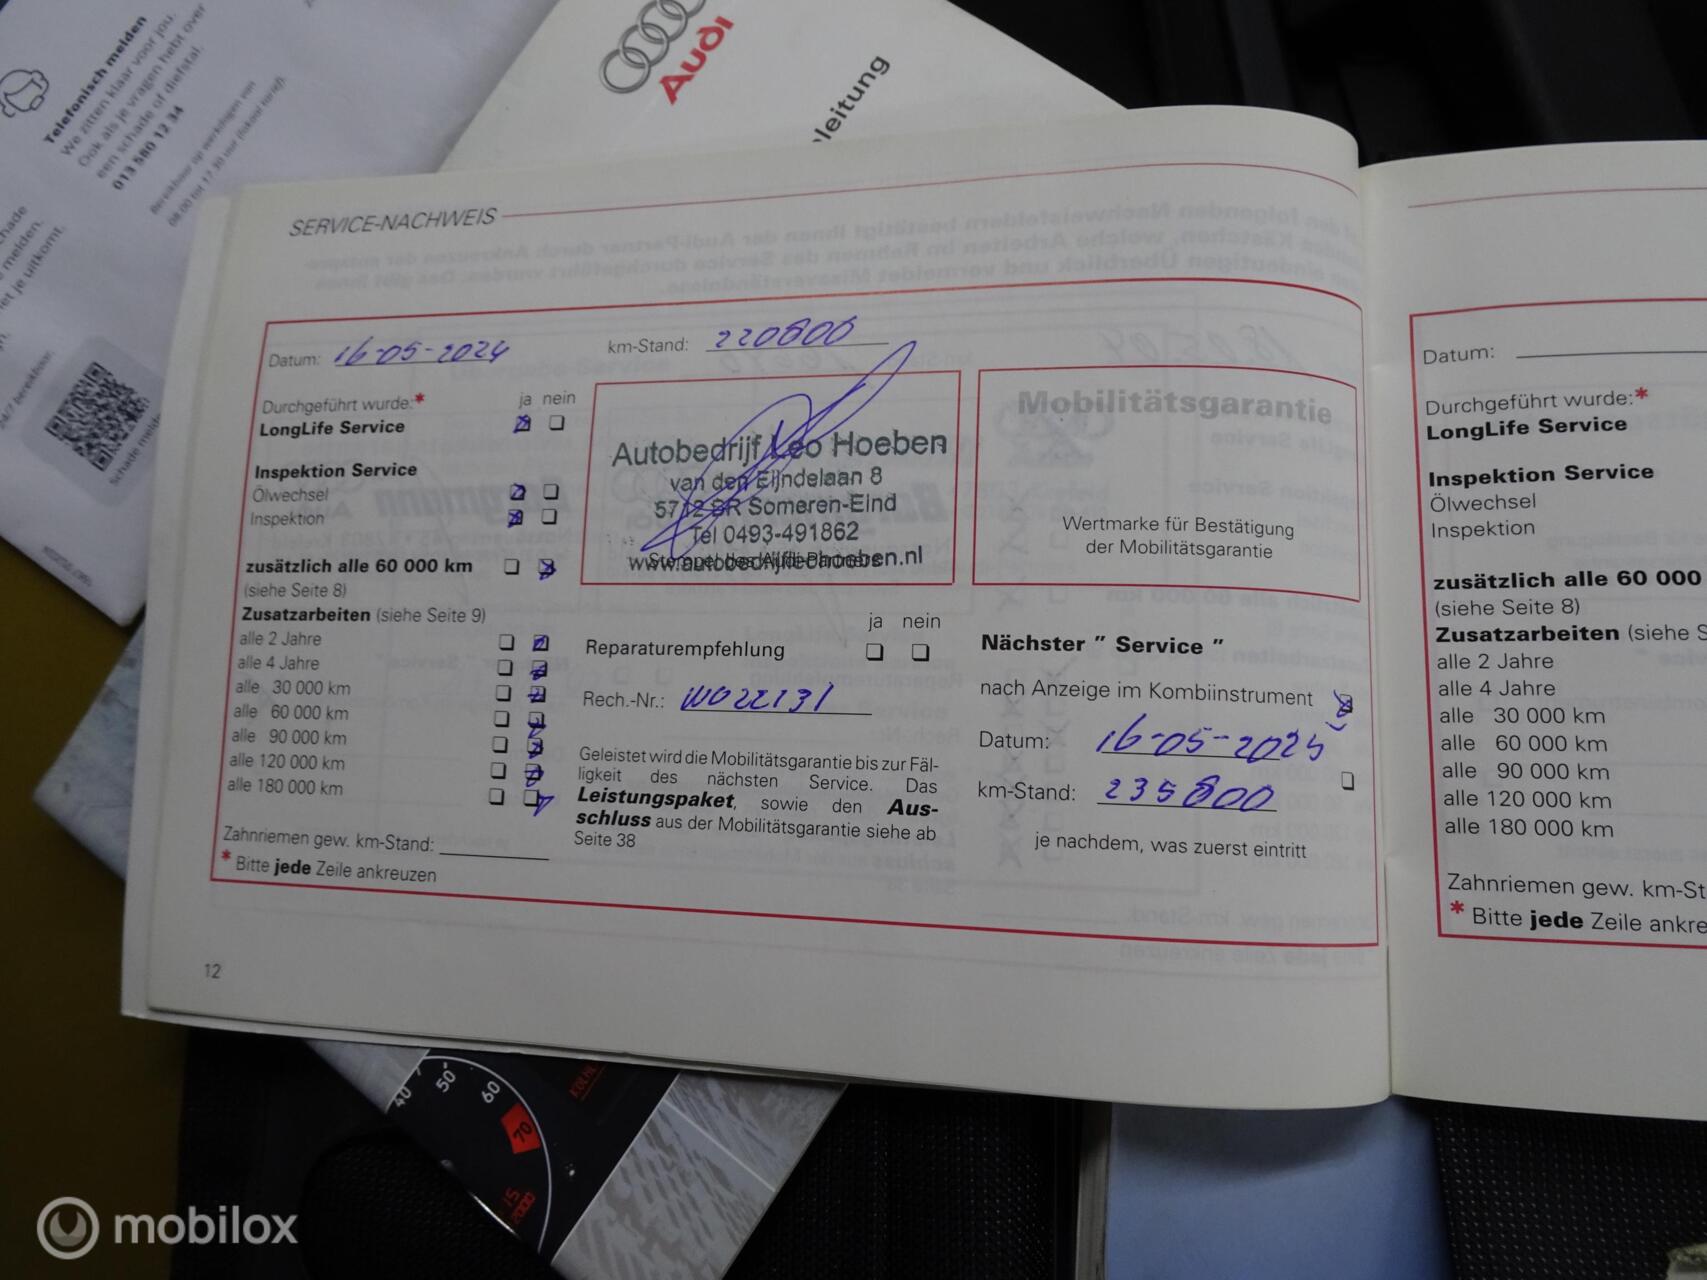 Telefonisch melden
We zitten klaar voor jou.
Ook als je vragen hebt over
een schade of diefstal.
013 580 12 34
Bereikbaar op werkdagen van
08.00 tot 17.30 uur (lokaal tarief).
Audi
leitung
SERVICE-NACHWEIS
Datum: 16-05-2024 km-Stand: 220800
Durchgeführt wurde:* ja nein
LongLife Service
Inspektion Service
Ölwechsel
Inspektion
zusätzlich alle 60 000 km
(siehe Seite 8)
Zusatzarbeiten (siehe Seite 9)
alle 2 Jahre
alle 4 Jahre
alle 30 000 km
alle 60 000 km
alle 90 000 km
alle 120 000 km
alle 180 000 km
Zahnriemen gew. km-Stand:
* Bitte jede Zeile ankreuzen
12
Autobedrijf Leo Hoeben
van den Eijndelaan 8
5712 BR Someren-Eind
Tel 0493-491862
www.autobedrijfleohoeben.nl
ja nein
Reparaturempfehlung
Rech.-Nr.: WO22131
Geleistet wird die Mobilitätsgarantie bis zur Fäl-
ligkeit des nächsten Service. Das
Leistungspaket, sowie den Aus-
schluss aus der Mobilitätsgarantie siehe ab
Seite 38
Mobilitätsgarantie
Wertmarke für Bestätigung
der Mobilitätsgarantie
Nächster " Service "
nach Anzeige im Kombiinstrument
Datum: 16-05-2025
km-Stand: 235800
je nachdem, was zuerst eintritt
Datum:
Durchgeführt wurde:*
LongLife Service
Inspektion Service
Ölwechsel
Inspektion
zusätzlich alle 60 000
(siehe Seite 8)
Zusatzarbeiten (siehe S
alle 2 Jahre
alle 4 Jahre
alle 30 000 km
alle 60 000 km
alle 90 000 km
alle 120 000 km
alle 180 000 km
Zahnriemen gew. km-Sta
* Bitte jede Zeile ankre
40 50 60 70
mobilox